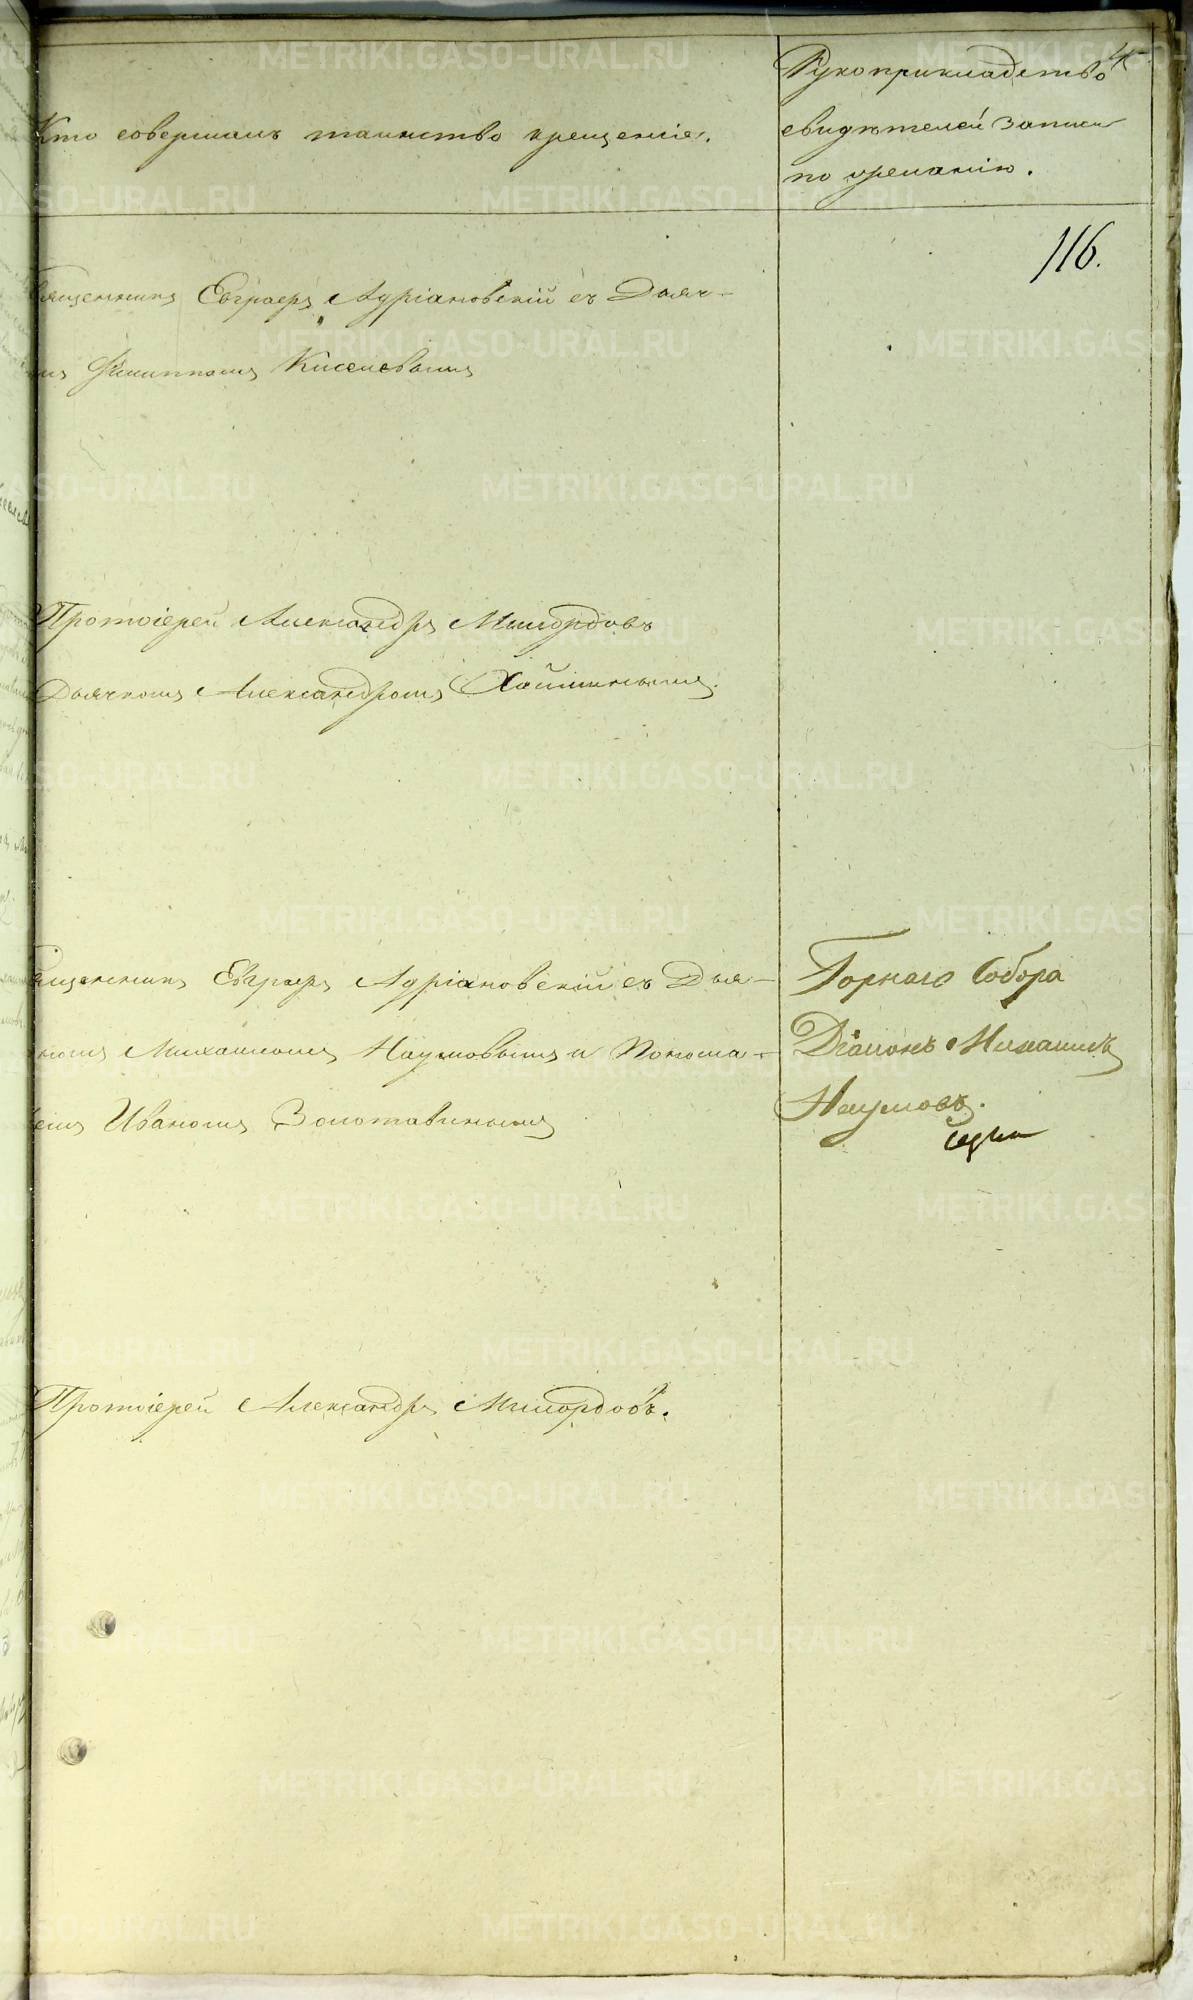 4
Кто совершалъ таинство крещенія.
Рукоприкладство
свидѣтелей записи
по желанію.
116.
Священникъ Евграфъ Адріановскій съ Дьяч-
Филиппомъ Киселевымъ
Протоіерей Александръ Милордовъ
Дьячкомъ Александромъ
Священникъ Евграфъ Адріановскій съ Дья-
кономъ Михаиломъ Наумовымъ и Понома-
Иваномъ Золотавинымъ
Горнаго Собора
Діаконъ Михаилъ
Наумовъ.
Протоіерей Александръ Милордовъ.
METRIKI.GASO-URAL.RU